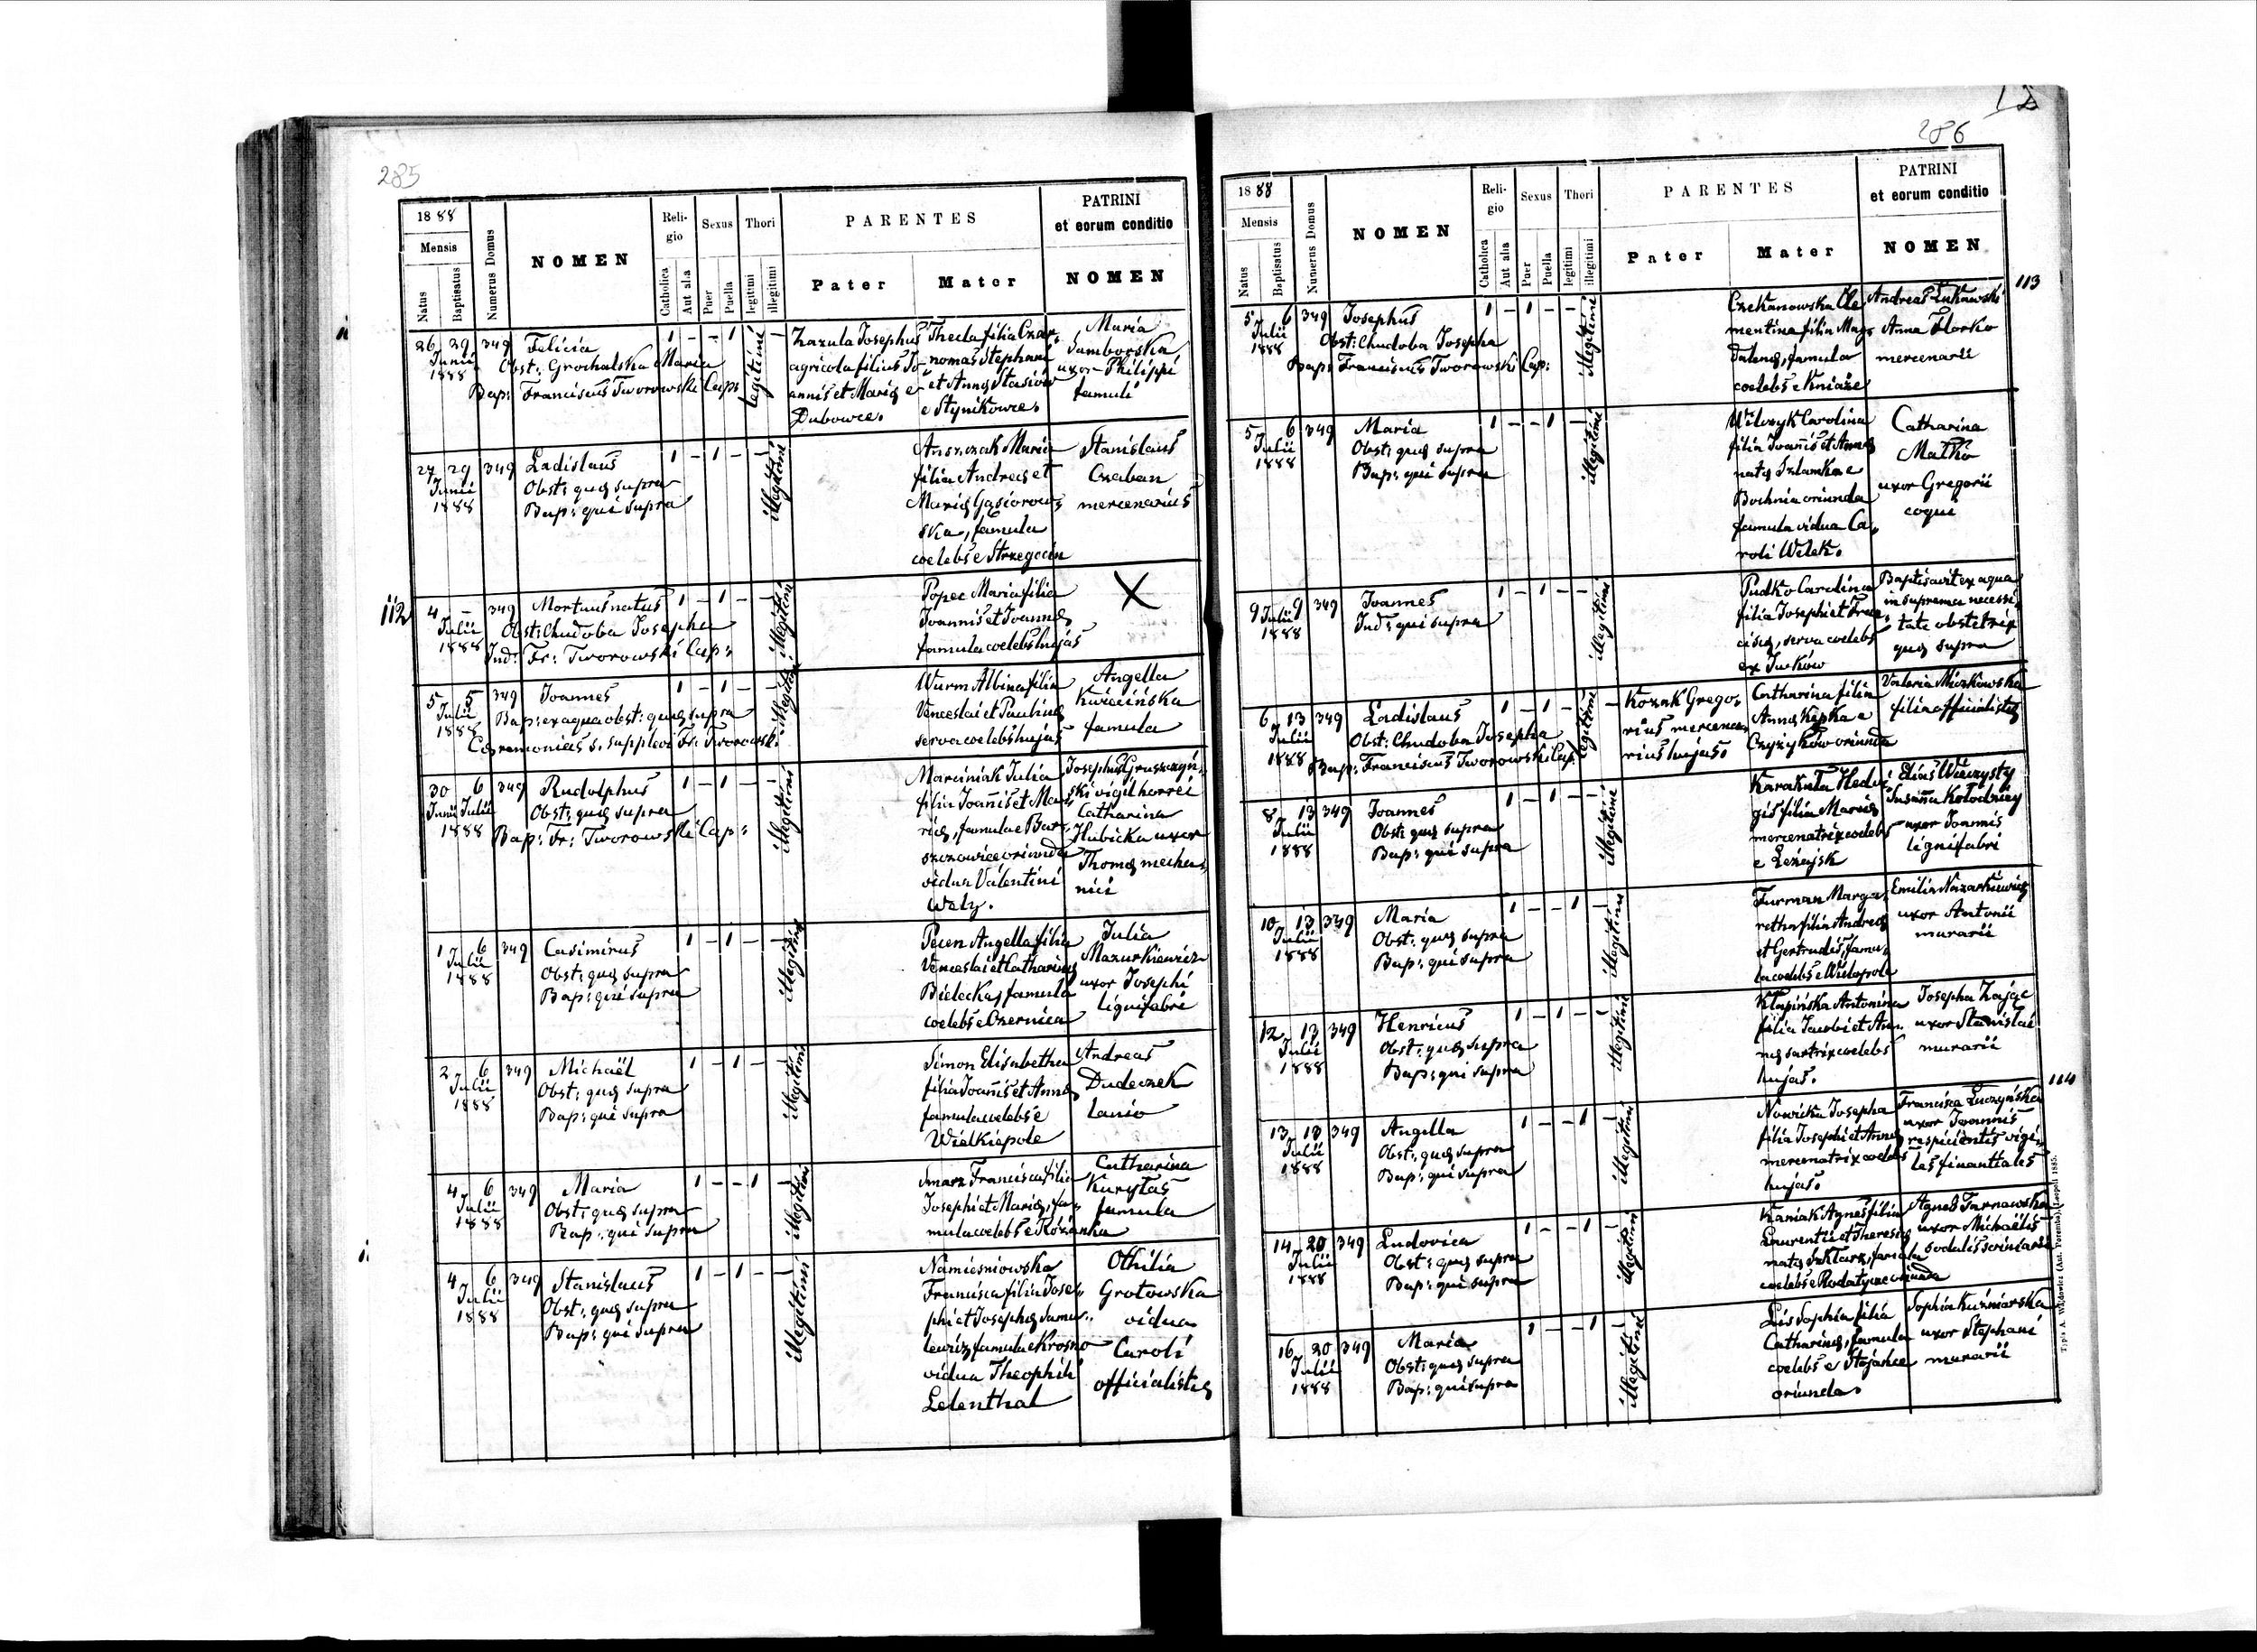 285
1888
Mensis
Natus
Baptisatus
Numerus Domus
NOMEN
Religio
Catholica
Aut alia
Sexus
Puer
Puella
Thori
legitimi
illegitimi
PARENTES
Pater
Mater
PATRINI
et eorum conditio
NOMEN
26 29 349 Felicia 1 - - 1 legitimi -
Junii
1888
Obst: Grochalska Maria
Bap: Franciscus Tworowski Cap:
Zazula Josephus
agricola filius Jo-
annis et Marię e
Dubowce.
Thecla filia Czar-
nomas Stephani
et Annę Stasiów
e Stynikowce.
Maria
Samborska
uxor Philippi
famuli
27 29 349 Ladislaus 1 - 1 - - illegitimi
Junii
1888
Obst: quę supra
Bap: qui supra
filia Andreę et
Marię Gąsiorow-
ska, famula
coelebs e Strzegocin
Stanislaus
Czaban
mercenarius
112
4 - 349 Mortuus natus 1 - 1 - - illegitimi
Julii
1888
Obst: Chudoba Josepha
Ind: Fr: Tworowski Cap:
Popec Maria filia
Joannis et Joannę
famula coelebs hujas
X
5 5 349 Joannes 1 - 1 - - illegitimi
Julii
1888
Bap: ex aqua obst: quę supra
Cęremonias s. supplevi Fr: Tworowski
Wurm Albina filia
Venceslai et Paulinę
serva coelebs hujas
Angella
Kwiecińska
famula
30 6 349 Rudolphus 1 - 1 - - illegitimi
Junii Julii
1888
Obst: quę supra
Bap: Fr: Tworowski Cap:
Marciniak Julia
filia Joannis et Ma-
rię, famula e Bar-
szczowice oriunda
vidua Valentini
Wały.
Josephus Gruszczyń-
ski vigil horrei
Catharina
Hubicka uxor
Thomę mecha-
nici
1 6 349 Casimirus 1 - 1 - - illegitimi
Julii
1888
Obst: quę supra
Bap: qui supra
Pecen Angella filia
Venceslai et Catharinę
Bielecka, famula
coelebs e Czernica
Julia
Mazurkiewicz
uxor Josephi
lignifabri
2 6 349 Michaël 1 - 1 - - illegitimi
Julii
1888
Obst: quę supra
Bap: qui supra
Simon Elisabetha
filia Joannis et Annę
famula coelebs e
Wielkiepole
Andreas
Dudeczek
lanio
4 6 349 Maria 1 - - 1 - illegitimi
Julii
1888
Obst: quę supra
Bap: qui supra
Smarz Francisca filia
Josephi et Marię, fa-
mula coelebs e Rózanka
Catharina
Kurytas
famula
4 6 349 Stanislaus 1 - 1 - - illegitimi
Julii
1888
Obst: quę supra
Bap: qui supra
Namiesniowska
Francisca filia Jose-
phi et Josephę Samu-
lewicz, famula e Krosno
vidua Theophili
Lelenthal
Othilia
Grotowska
vidua
Caroli
officialistę
286
1888
Mensis
Natus
Baptisatus
Numerus Domus
NOMEN
Religio
Catholica
Aut alia
Sexus
Puer
Puella
Thori
legitimi
illegitimi
PARENTES
Pater
Mater
PATRINI
et eorum conditio
NOMEN
113
5 6 349 Josephus 1 - 1 - - illegitimi
Julii
1888
Obst: Chudoba Josepha
Bap: Franciscus Tworowski Cap:
Czekanowska Cle-
mentina filia Mag-
dalenę, famula
coelebs e Kniaże
Andreas Łukawski
Anna Florko
mercenarii
5 6 349 Maria 1 - - 1 - illegitimi
Julii
1888
Obst: quę supra
Bap: qui supra
Wilczyk Carolina
filia Joannis et Annę
natę Szlamka e
Bochnia oriunda
famula vidua Ca-
roli Wilek.
Catharina
Matko
uxor Gregorii
coqui
9 9 349 Joannes 1 - 1 - - illegitimi
Julii
1888
Ind: qui supra
Pudko Carolina
filia Josephi et Fran-
ciscę, serva coelebs
ex Turków
Baptisavit ex aqua
in suprema necessi-
tate obstetrix
quę supra
6 13 349 Ladislaus 1 - 1 - legitimi -
Julii
1888
Obst: Chudoba Josepha
Bap: Franciscus Tworowski Cap:
Kozak Grego-
rius mercena-
rius hujas.
Catharina filia
Annę Kępka e
Czyżyków oriunda
Valeria Miczkowska
filia officialistę
8 13 349 Joannes 1 - 1 - - illegitimi
Julii
1888
Obst: quę supra
Bap: qui supra
Karakuła Hedvi-
gis filia Marię
mercenatrix coelebs
e Leżajsk
Elias Wieczysty
Susanna Kołodziey
uxor Joannis
lignifabri
10 13 349 Maria 1 - - 1 - illegitimi
Julii
1888
Obst: quę supra
Bap: qui supra
Furman Marga-
retha filia Andreę
et Gertrudis, famu-
la coelebs e Wielopole
Emilia Nazarkiewicz
uxor Antonii
murarii
12 13 349 Henricus 1 - 1 - - illegitimi
Julii
1888
Obst: quę supra
Bap: qui supra
Kłapińska Antonina
filia Jacobi et An-
nę sartrix coelebs
hujas.
Josepha Zając
uxor Stanislai
murarii
114
13 18 349 Angella 1 - - 1 - illegitimi
Julii
1888
Obst: quę supra
Bap: qui supra
Nowicka Josepha
filia Josephi et Annę
mercenatrix coelebs
hujas.
Francisca Łuczyńska
uxor Joannis
respicientis vigi-
les finantiales
14 20 349 Ludovica 1 - - 1 - illegitimi
Julii
1888
Obst: quę supra
Bap: qui supra
Kaniak Agnes filia
Laurentii et Theresię
natę Szklarz, famula
coelebs e Rodatycze oriunda
Agnes Tarnawska
uxor Michaëlis
sodalis scriniarii
16 20 349 Maria 1 - - 1 - illegitimi
Julii
1888
Obst: quę supra
Bap: qui supra
Lis Sophia filia
Catharinę, famula
coelebs e Stojańce
oriunda.
Sophia Kuźniarska
uxor Stephani
murarii